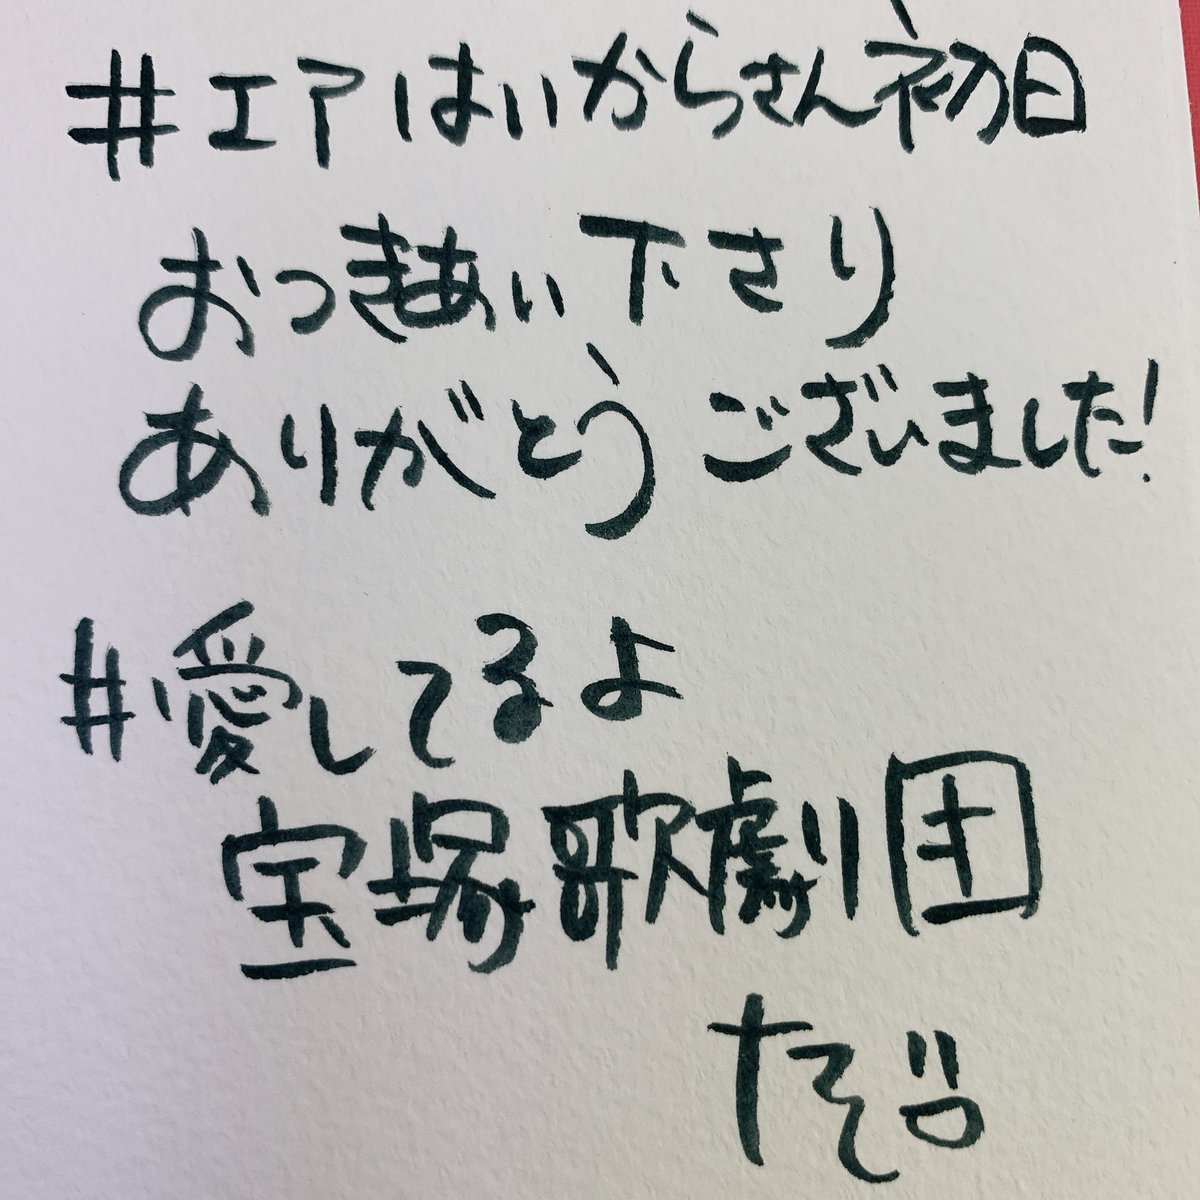 #エアはいからさん初日
おつきあい下さり
ありがとうございました!
#愛してるよ
宝塚歌劇団